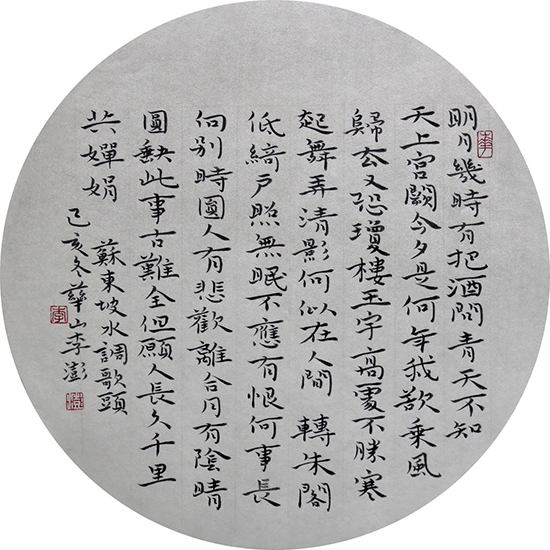 明月幾時有把酒問青天不知
天上宮闕今夕是何年我欲乘風
歸去又恐瓊樓玉宇高處不勝寒
起舞弄清影何似在人間 轉朱閣
低綺戶照無眠不應有恨何事長
向別時圓人有悲歡離合月有陰晴
圓缺此事古難全但願人長久千里
共嬋娟
蘇東坡水調歌頭
己亥冬華山李澎